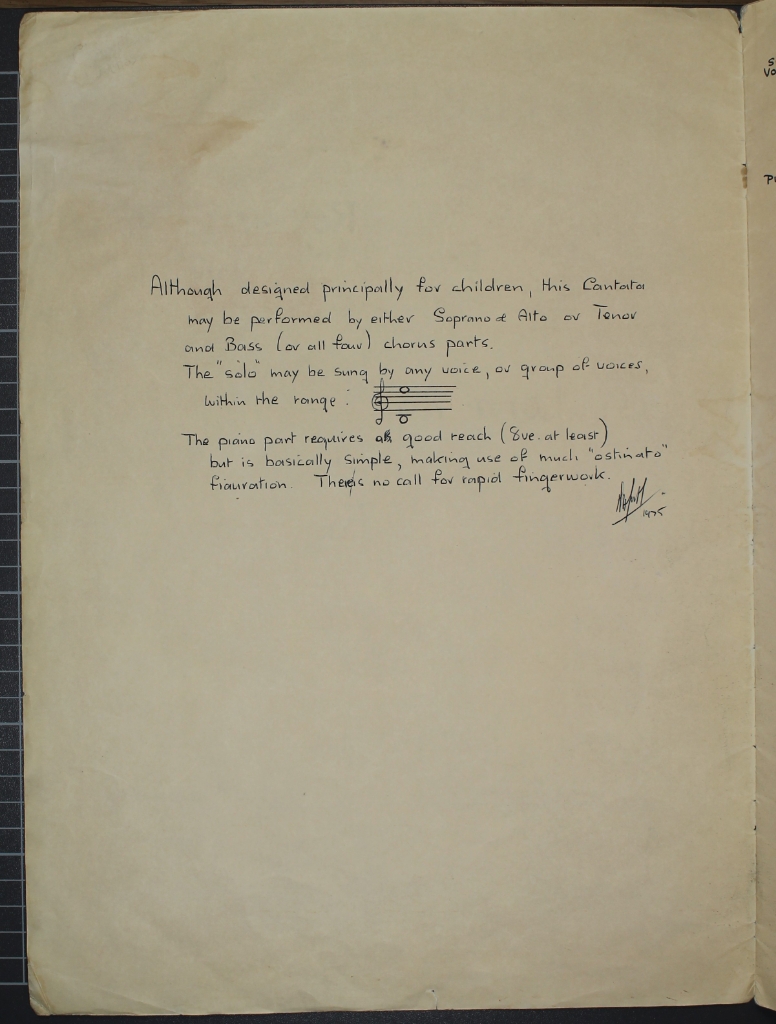 Although designed principally for children, this Cantata
may be performed by either Soprano & Alto or Tenor
and Bass (or all four) chorus parts.
The "solo" may be sung by any voice, or group of voices,
within the range :
The piano part requires a good reach (8ve. at least)
but is basically simple, making use of much "ostinato"
figuration. There is no call for rapid fingerwork.
1975